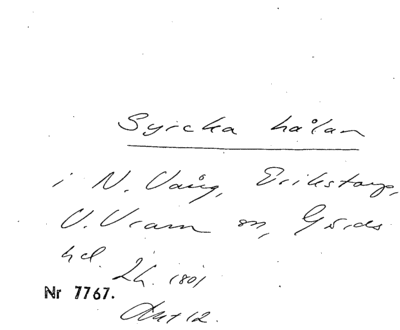 Syrcka hålan
i N. Vång, Erikstorp,
V. Vram sn, Gärds
hd. Lh. 1801
Nr 7767.
Akt 12.